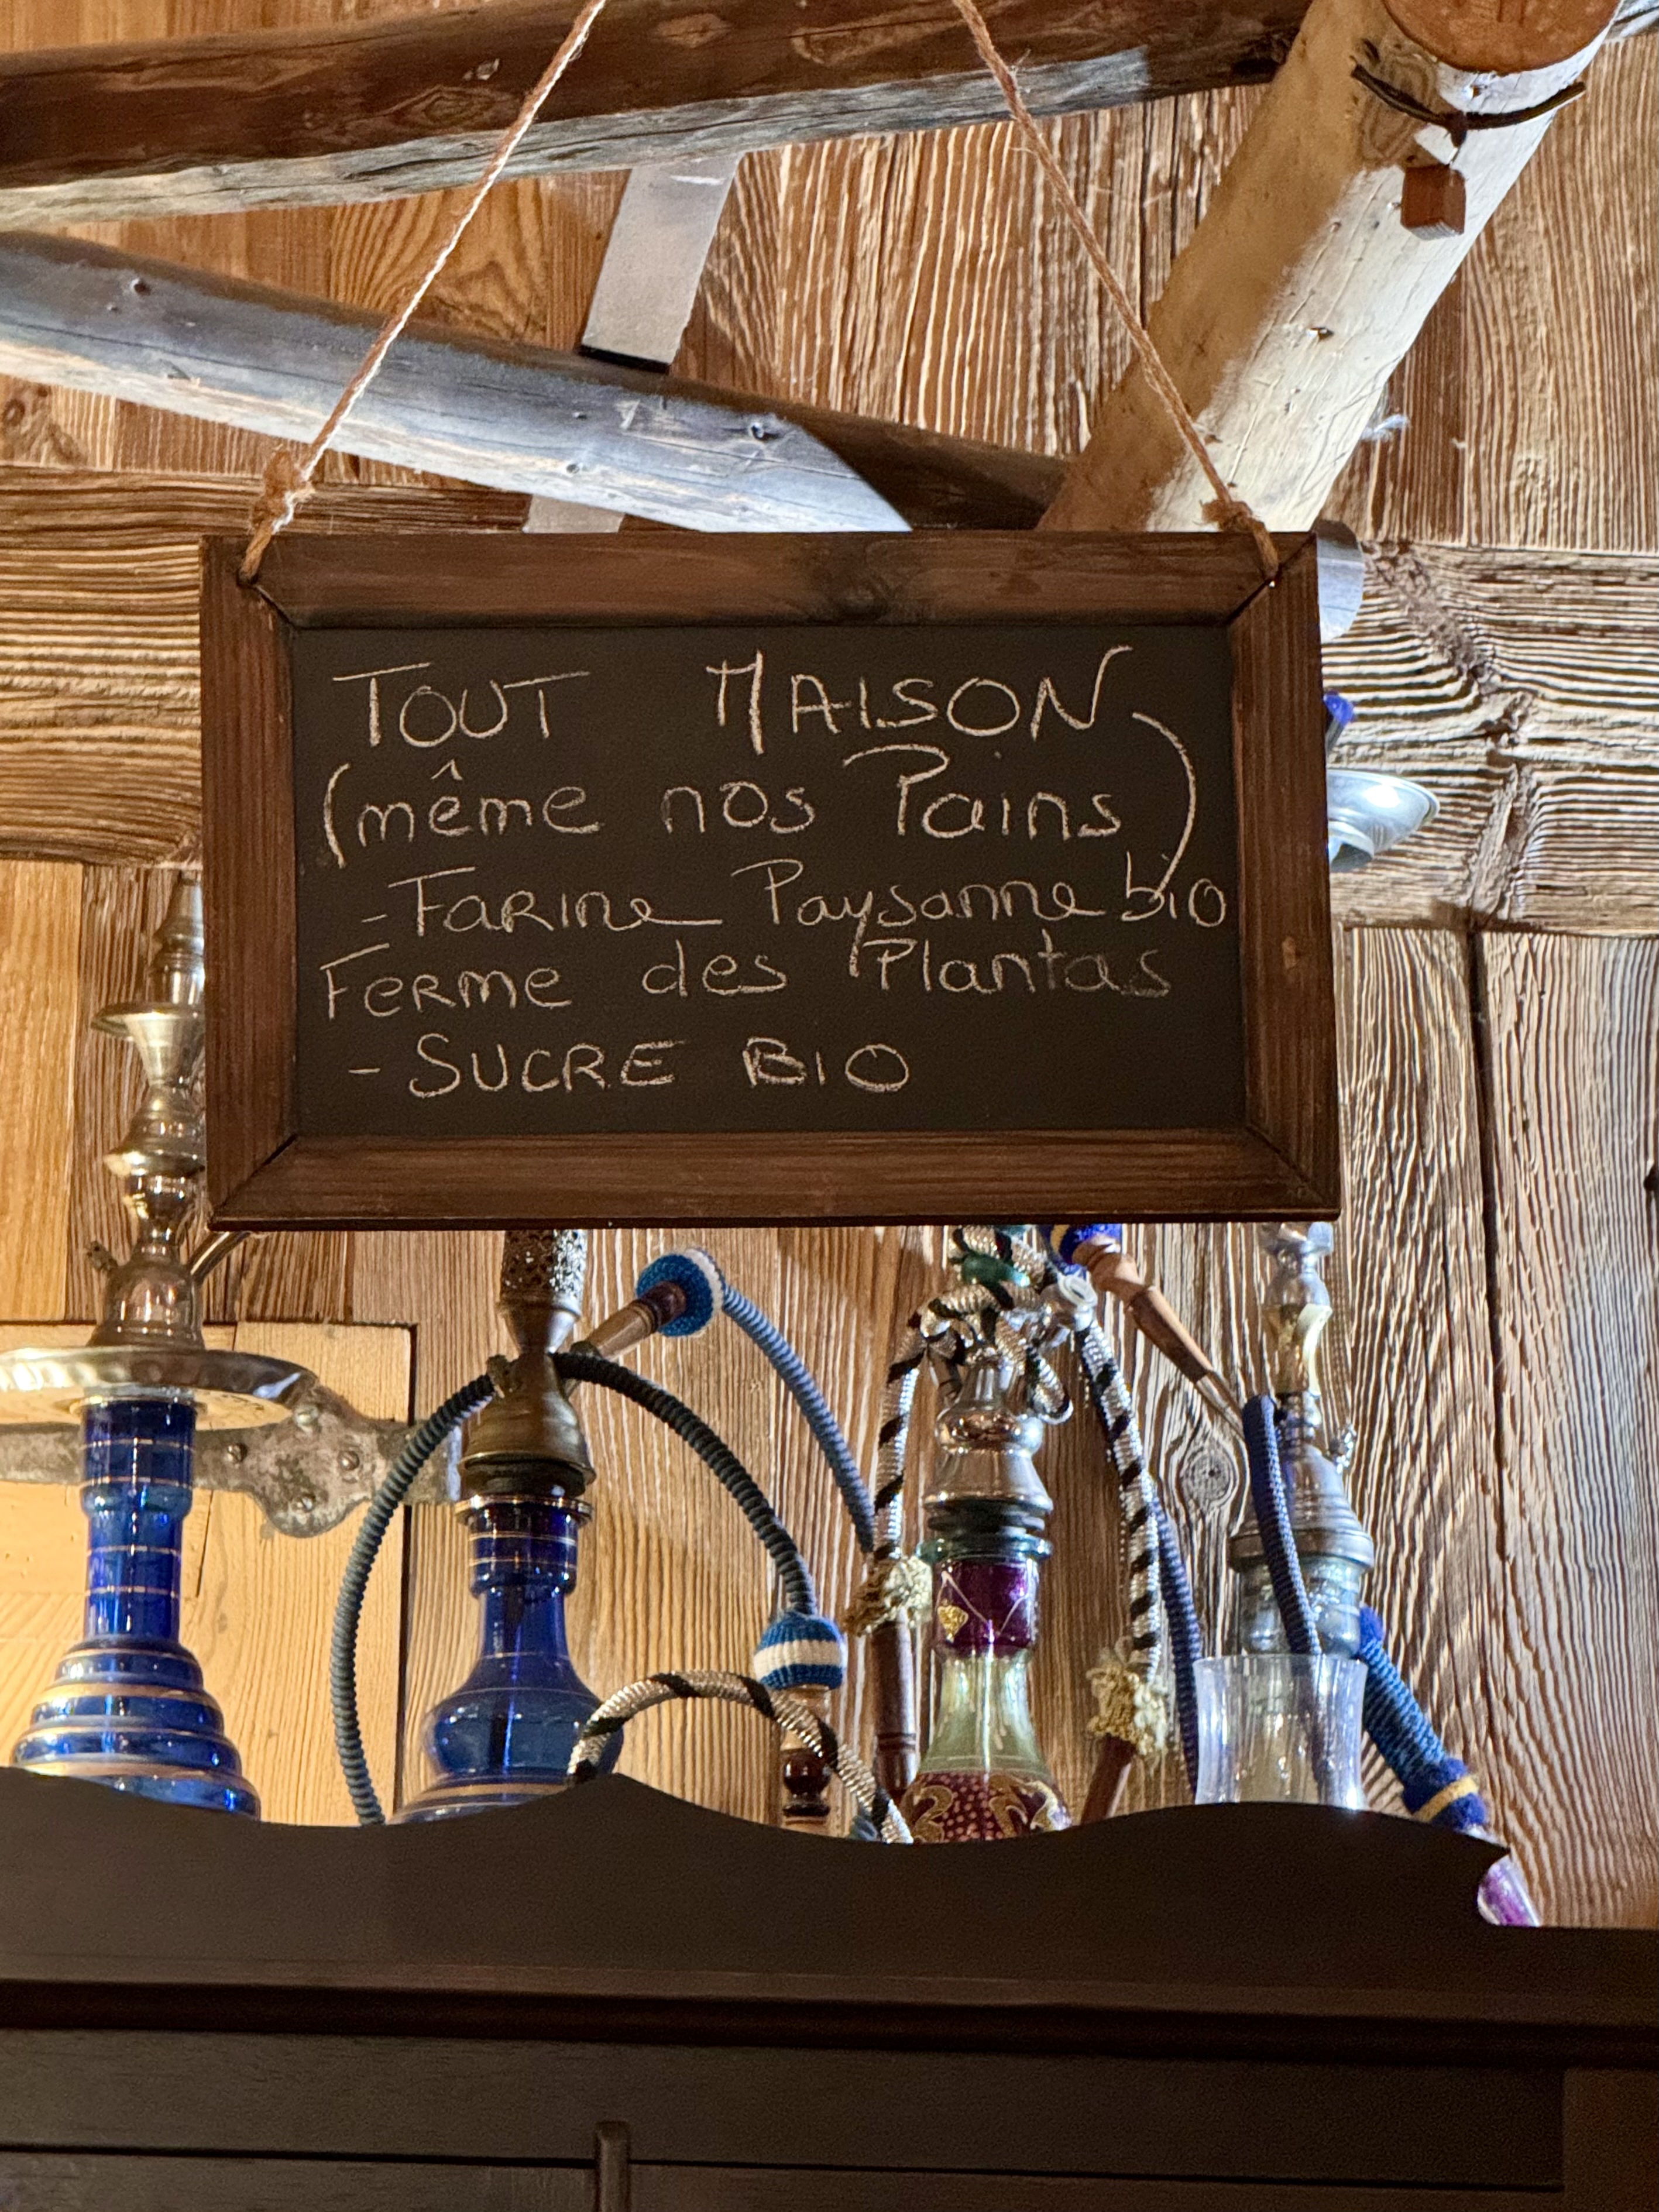 TOUT MAISON
(même nos Pains)
- FARINE Paysanne bio
FERME des Plantas
- SUCRE BIO